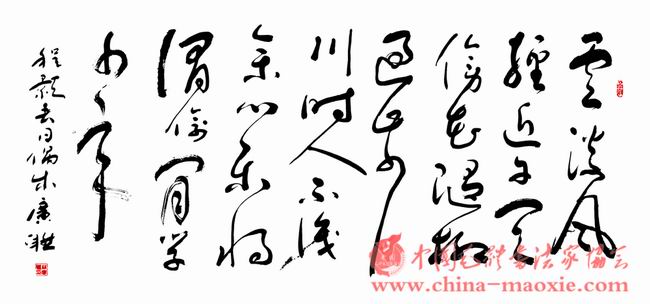 雲淡風
輕近午天
傍花随柳
過前
川时人不識
余心乐将
謂偷閒学
少年
程颢春日偶成
中国毛体书法家协会
www.china-maoxie.com